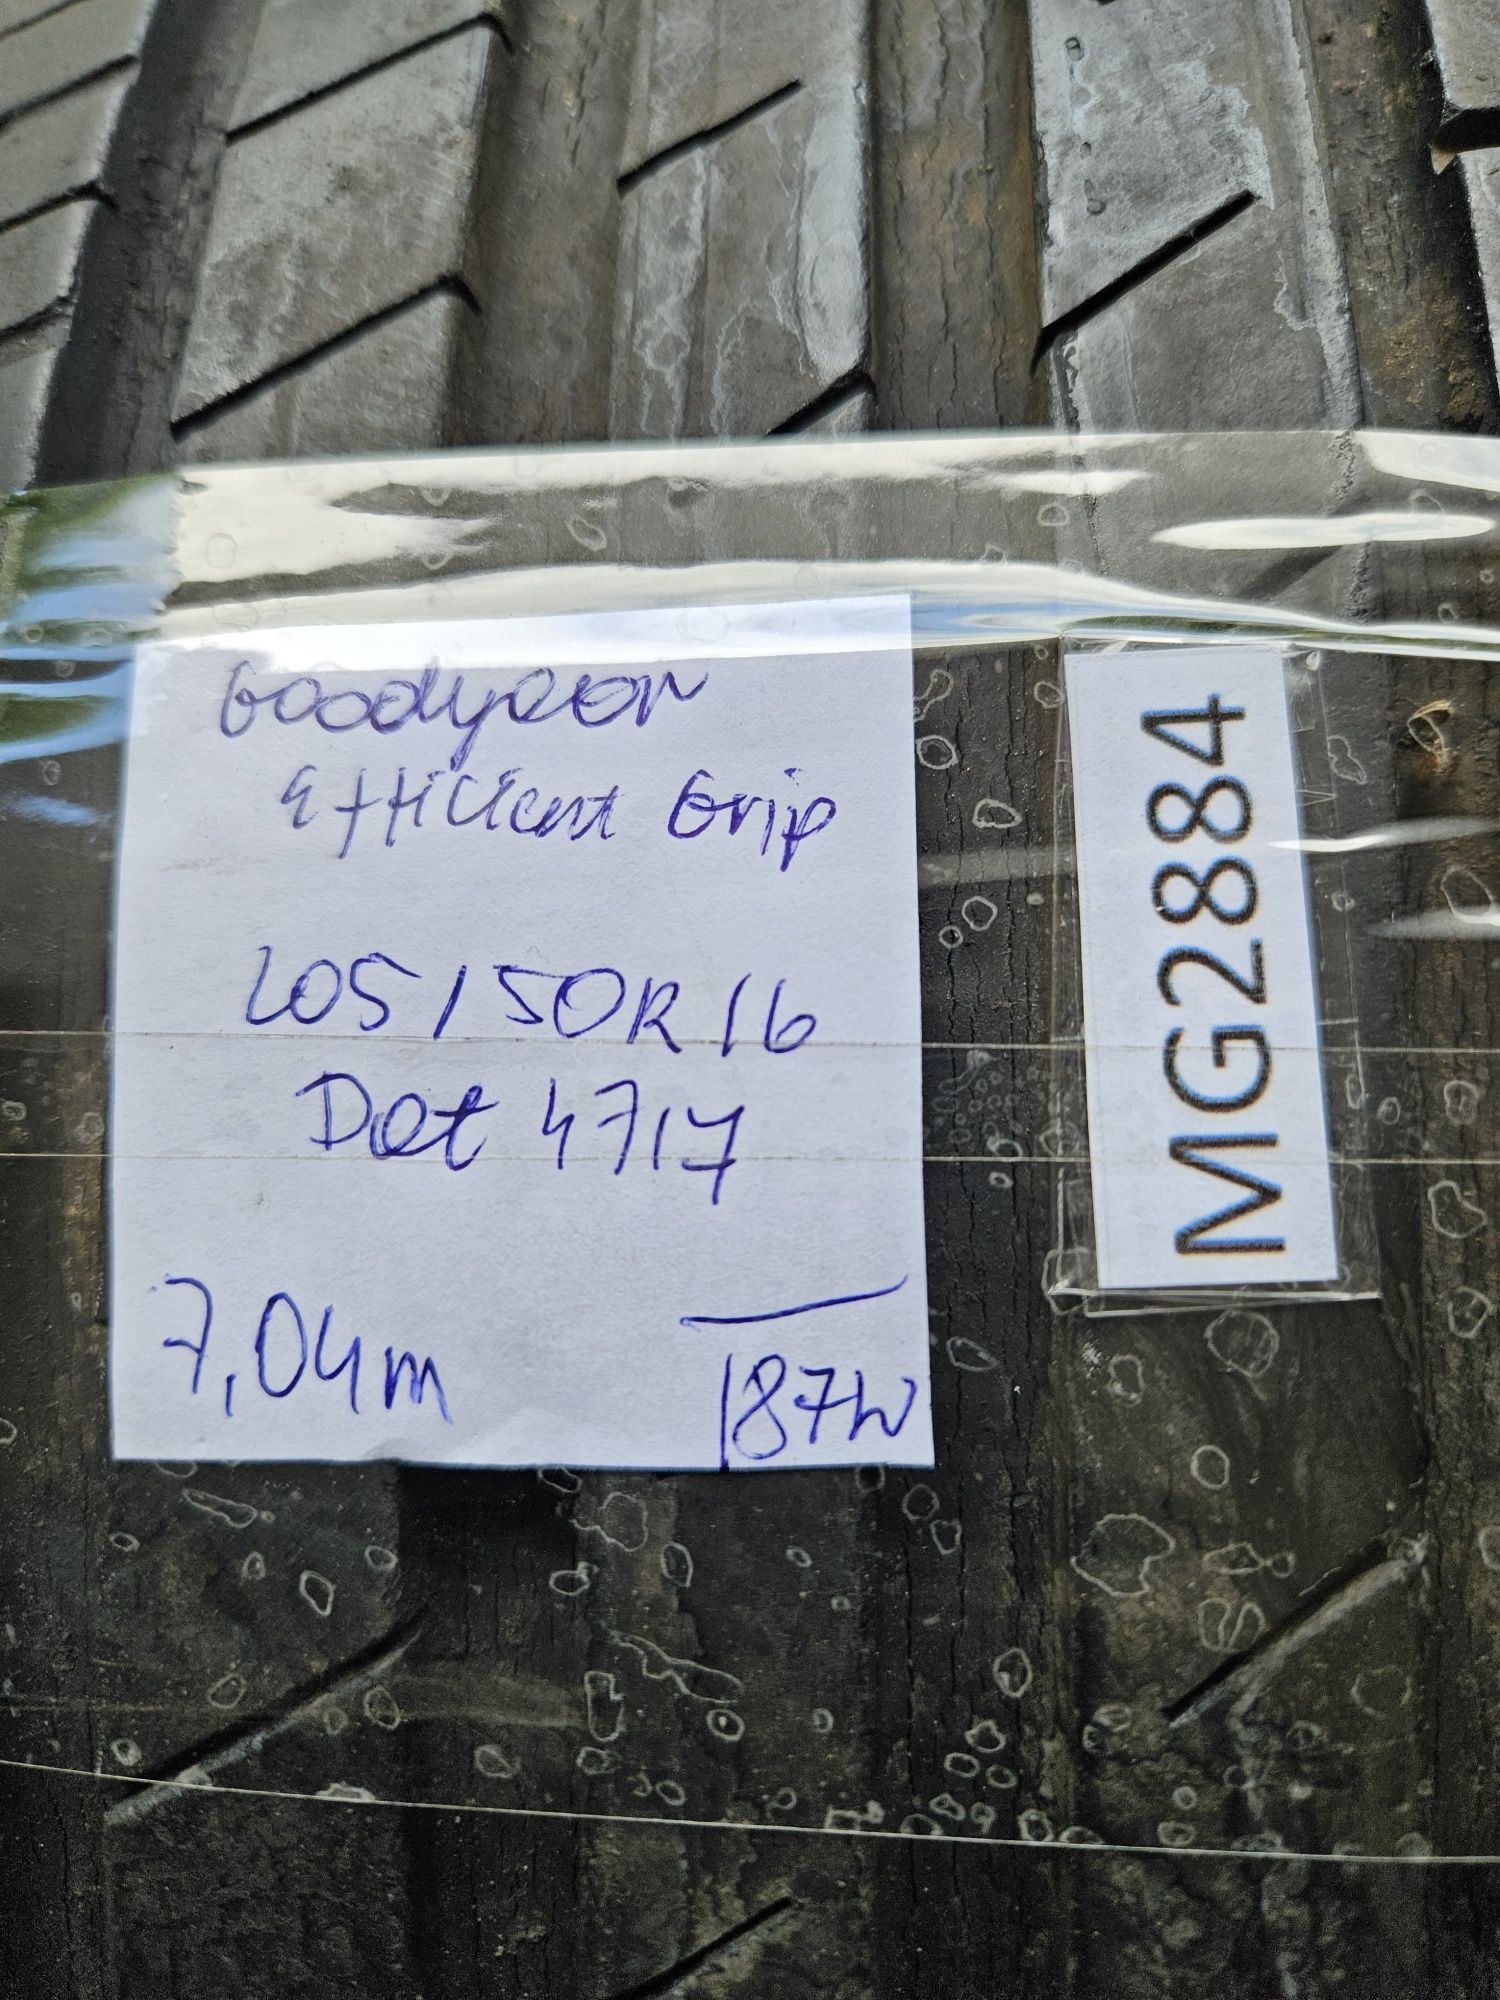 Goodyear
Efficient Grip
205/50R16
Dot 4717
7,04m
187W
MG2884